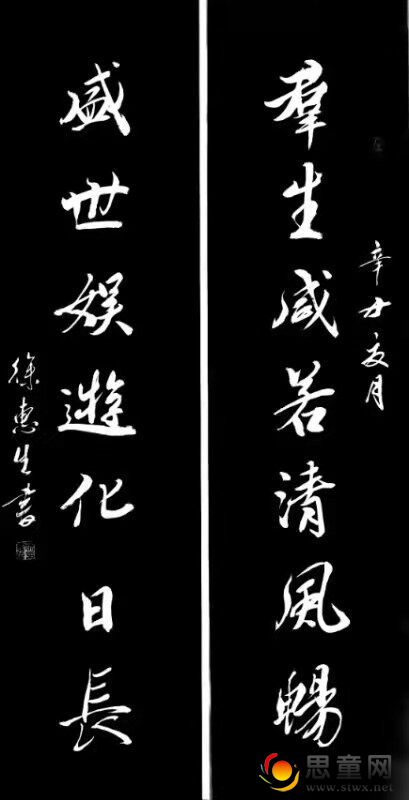 辛丑夏月
羣生咸若清風暢
盛世娱遊化日長
徐惠生書
思童网
www.stwx.net